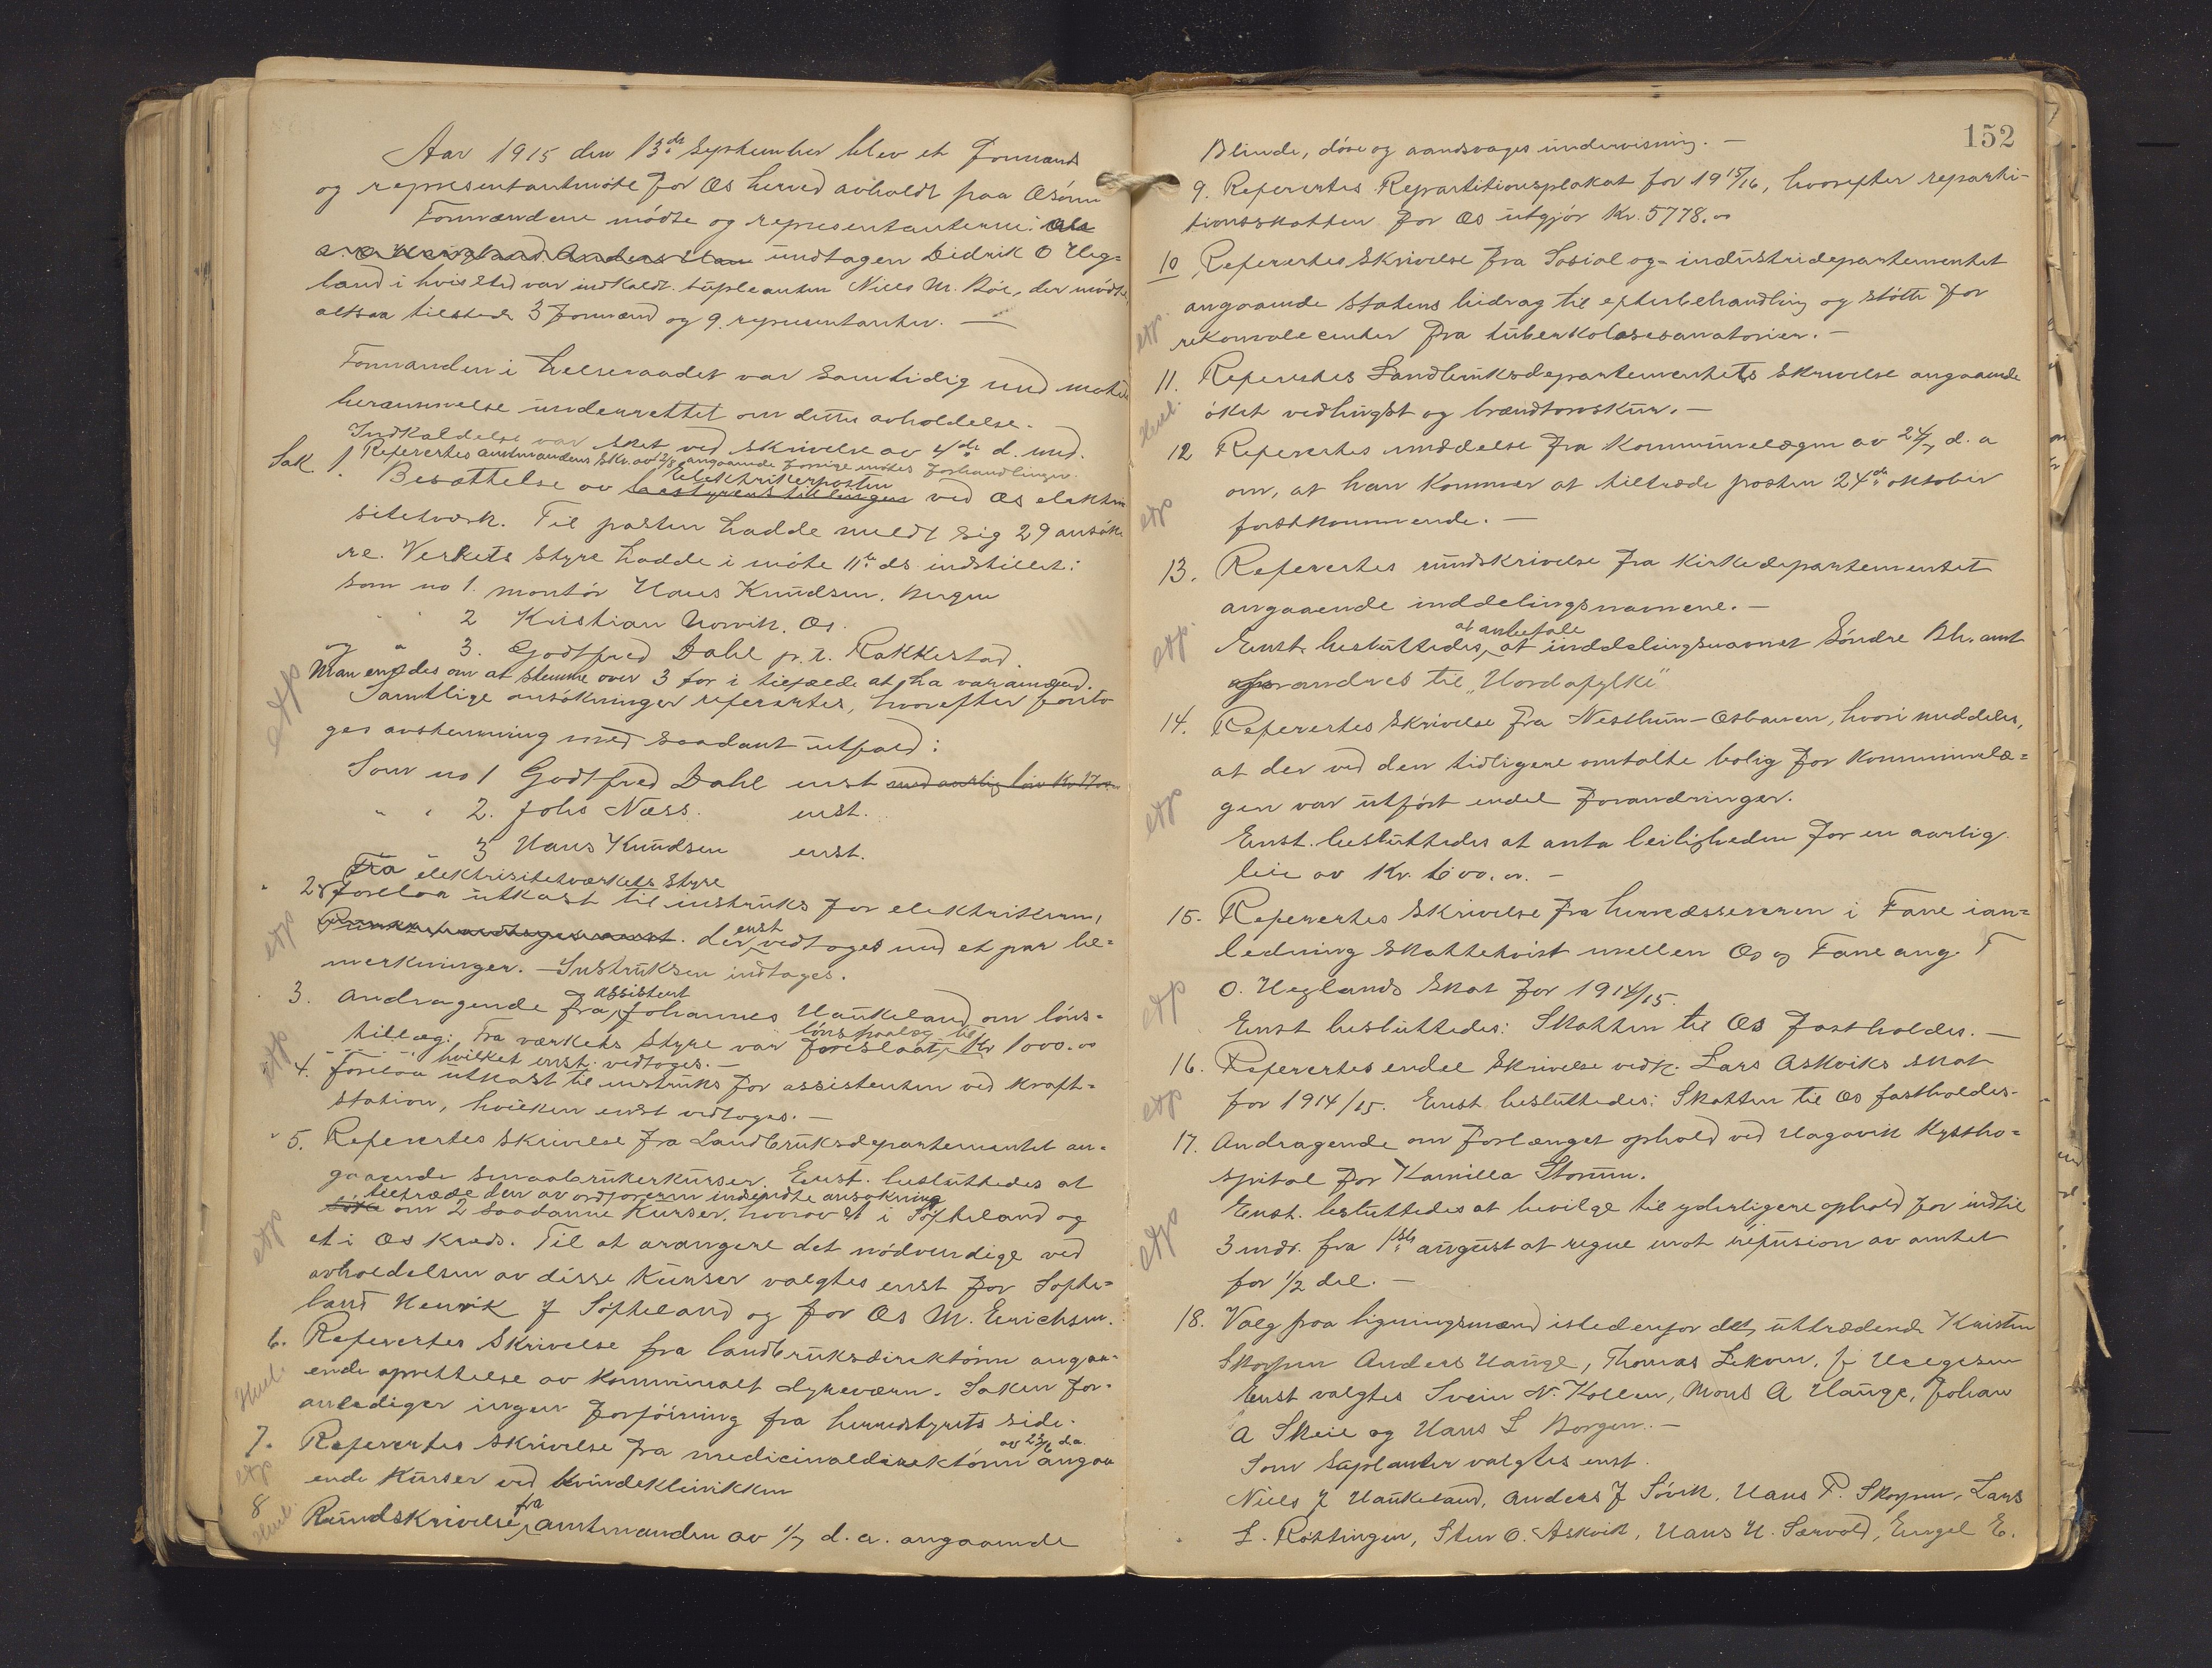 Aar 1915 den 13de September blev et formands
og representantmöte for Os herred avholdt paa Osören
Formændene mödte og representanterne: Ole
undtagen Didrik O Heg=
land i hvis sted var indkaldt supleanten Niels M. Böe, der mödte
altsaa tilstede 3 formænd og 9 representanter. —
Formanden i helseraadet var samtidig med mötets
berammelse underrettet om dettes avholdelse.
Indkaldelse var sket ved skrivelse av 4de d. md.
Refertes amtmandens skr. av 2/8 angaaende forrige mötes forhandlinger.
Sak 1. Besættelse av bestyrerstillingen elektrikerposten ved Os elektri
sitetverk. Til posten hadde meldt sig 29 ansöke
re. Verkets styre hadde i möte 11te ds indstillet:
som no 1. montör Hans Knudsen, Bergen
" " 2 Kristian Norvik, Os.
og " 3. Godtfred Dahl p.t. Rakkestad.
Man enedes om at stemme over 3 for i tilfælde at ha varamænd.
Samtlige ansökninger refertes, hvorefter forito
ges avstemning med saadant utfald:
Som no 1 Godtfred Dahl enst med aarlig lön kr.
" " 2. Johs Næss. enst.
3 Hans Knudsen enst.
Fra elektrisitetværkets styre
2. forelaa utkast til instruks for elektrikeren,
der enst vedtoges med et par be=
merkninger. — Instruksen indtages.
3. Andragende fra assistent Johannes Haukeland om löns=
tillæg: Fra værkets styre var foreslaat lönspaalæg til Kr 1000.00
hvilket enst. vedtoges. —
4. Forelaa utkast til instruks for assistenten ved kraft=
station, hvilken enst vedtoges. —
5. Refertes skrivelse fra Landbruksdepartementet an=
gaaende smaabrukerkurser. Enst. besluttedes at
tiltræde den av ordföreren indsendte ansökning
söke om 2 saadanne kurser, hvorav et i Söfteland og
et i Os kreds. Til at arangere det nödvendige ved
avholdelsen av disse kurser valgtes enst for Söfte=
land Henrik J Söfteland og for Os M. Erichsen.
6. Refertes skrivelse fra landbruksdirektören angaa=
ende oprettelse av kommunalt dyreværn. Saken for=
anlediger ingen forföining fra herredstyrets side.
7. Refertes skrivelse fra medicinaldirektören av 23/6 d.a. angaa
ende kurser ved kvindeklinikken
8 Rundskrivelse fra amtmanden av 1/7 d.a. angaaende
152
Blinde, döve og aandsvages undervisning. —
9. Refertes Repartitionsplakat for 1915/16, hvorefter reparti-
tionsskatten for Os utgjör Kr. 5778.00
10. Refertes skrivelse fra Sosial og- industridepartementet
angaaende statens bidrag til efterbehandling og stötte for
rekonvalecenter fra tuberkolosesanatorier. —
11. Refertes Landbruksdepartementets skrivelse angaaende
öket vedhugst og brændtorvskur. —
12 Refertes meddelelse fra kommunelægen av 24/7 d. a
om, at han kommer at tiltræde posten 24de oktober
förstkommende. —
13. Refertes rundskrivelse fra kirkedepartementet
angaaende inddelingsnavnene. —
Enst. besluttedes, at anbefale at inddelingsnavnet Söndre Bh. amt
forandres til „Hordafylke"
14. Refertes skrivelse fra Nesttun-Osbanen, hvori meddeles,
at der ved den tidligere omtalte bolig for kommunelæ=
gen var utfört endel forandringer.
Enst. besluttedes at anta leiligheden for en aarlig
leie av Kr. 600.00. —
15. Refertes skrivelse fra herredskassereren i Fane i an=
ledning skattetvist mellem Os og Fane ang. T
O. Heglands skat for 1914/15.
Enst besluttedes: Skatten til Os fastholdes. —
16. Refertes endel skrivelse vedk. Lars Askviks skat
for 1914/15. Enst. besluttedes: Skatten til Os fastholdes.
17. Andragende om forlænget ophold ved Hagavik Kystho=
spital for Kamilla Storum.
Enst. besluttedes at bevilge til yderligere ophold for indtil
3 mdr. fra 1ste august at regne mot refusion av amtet
for 1/2 del. —
18. Valg paa ligningsmænd istedenfor de uttrædende Kristen
Skorpen Anders Hauge, Thomas Lekven, J Helgesen
Enst valgtes Svein N. Kollen, Mons A Hauge, Johan
A Skeie og Hans L Borgen. —
Som suplanter valgtes enst.
Niels J Haukeland, Anders J Sövik, Hans P. Skorpen, Lars
L. Röttingen, Sten O. Askvik, Hans H. Særvold, Engel E.